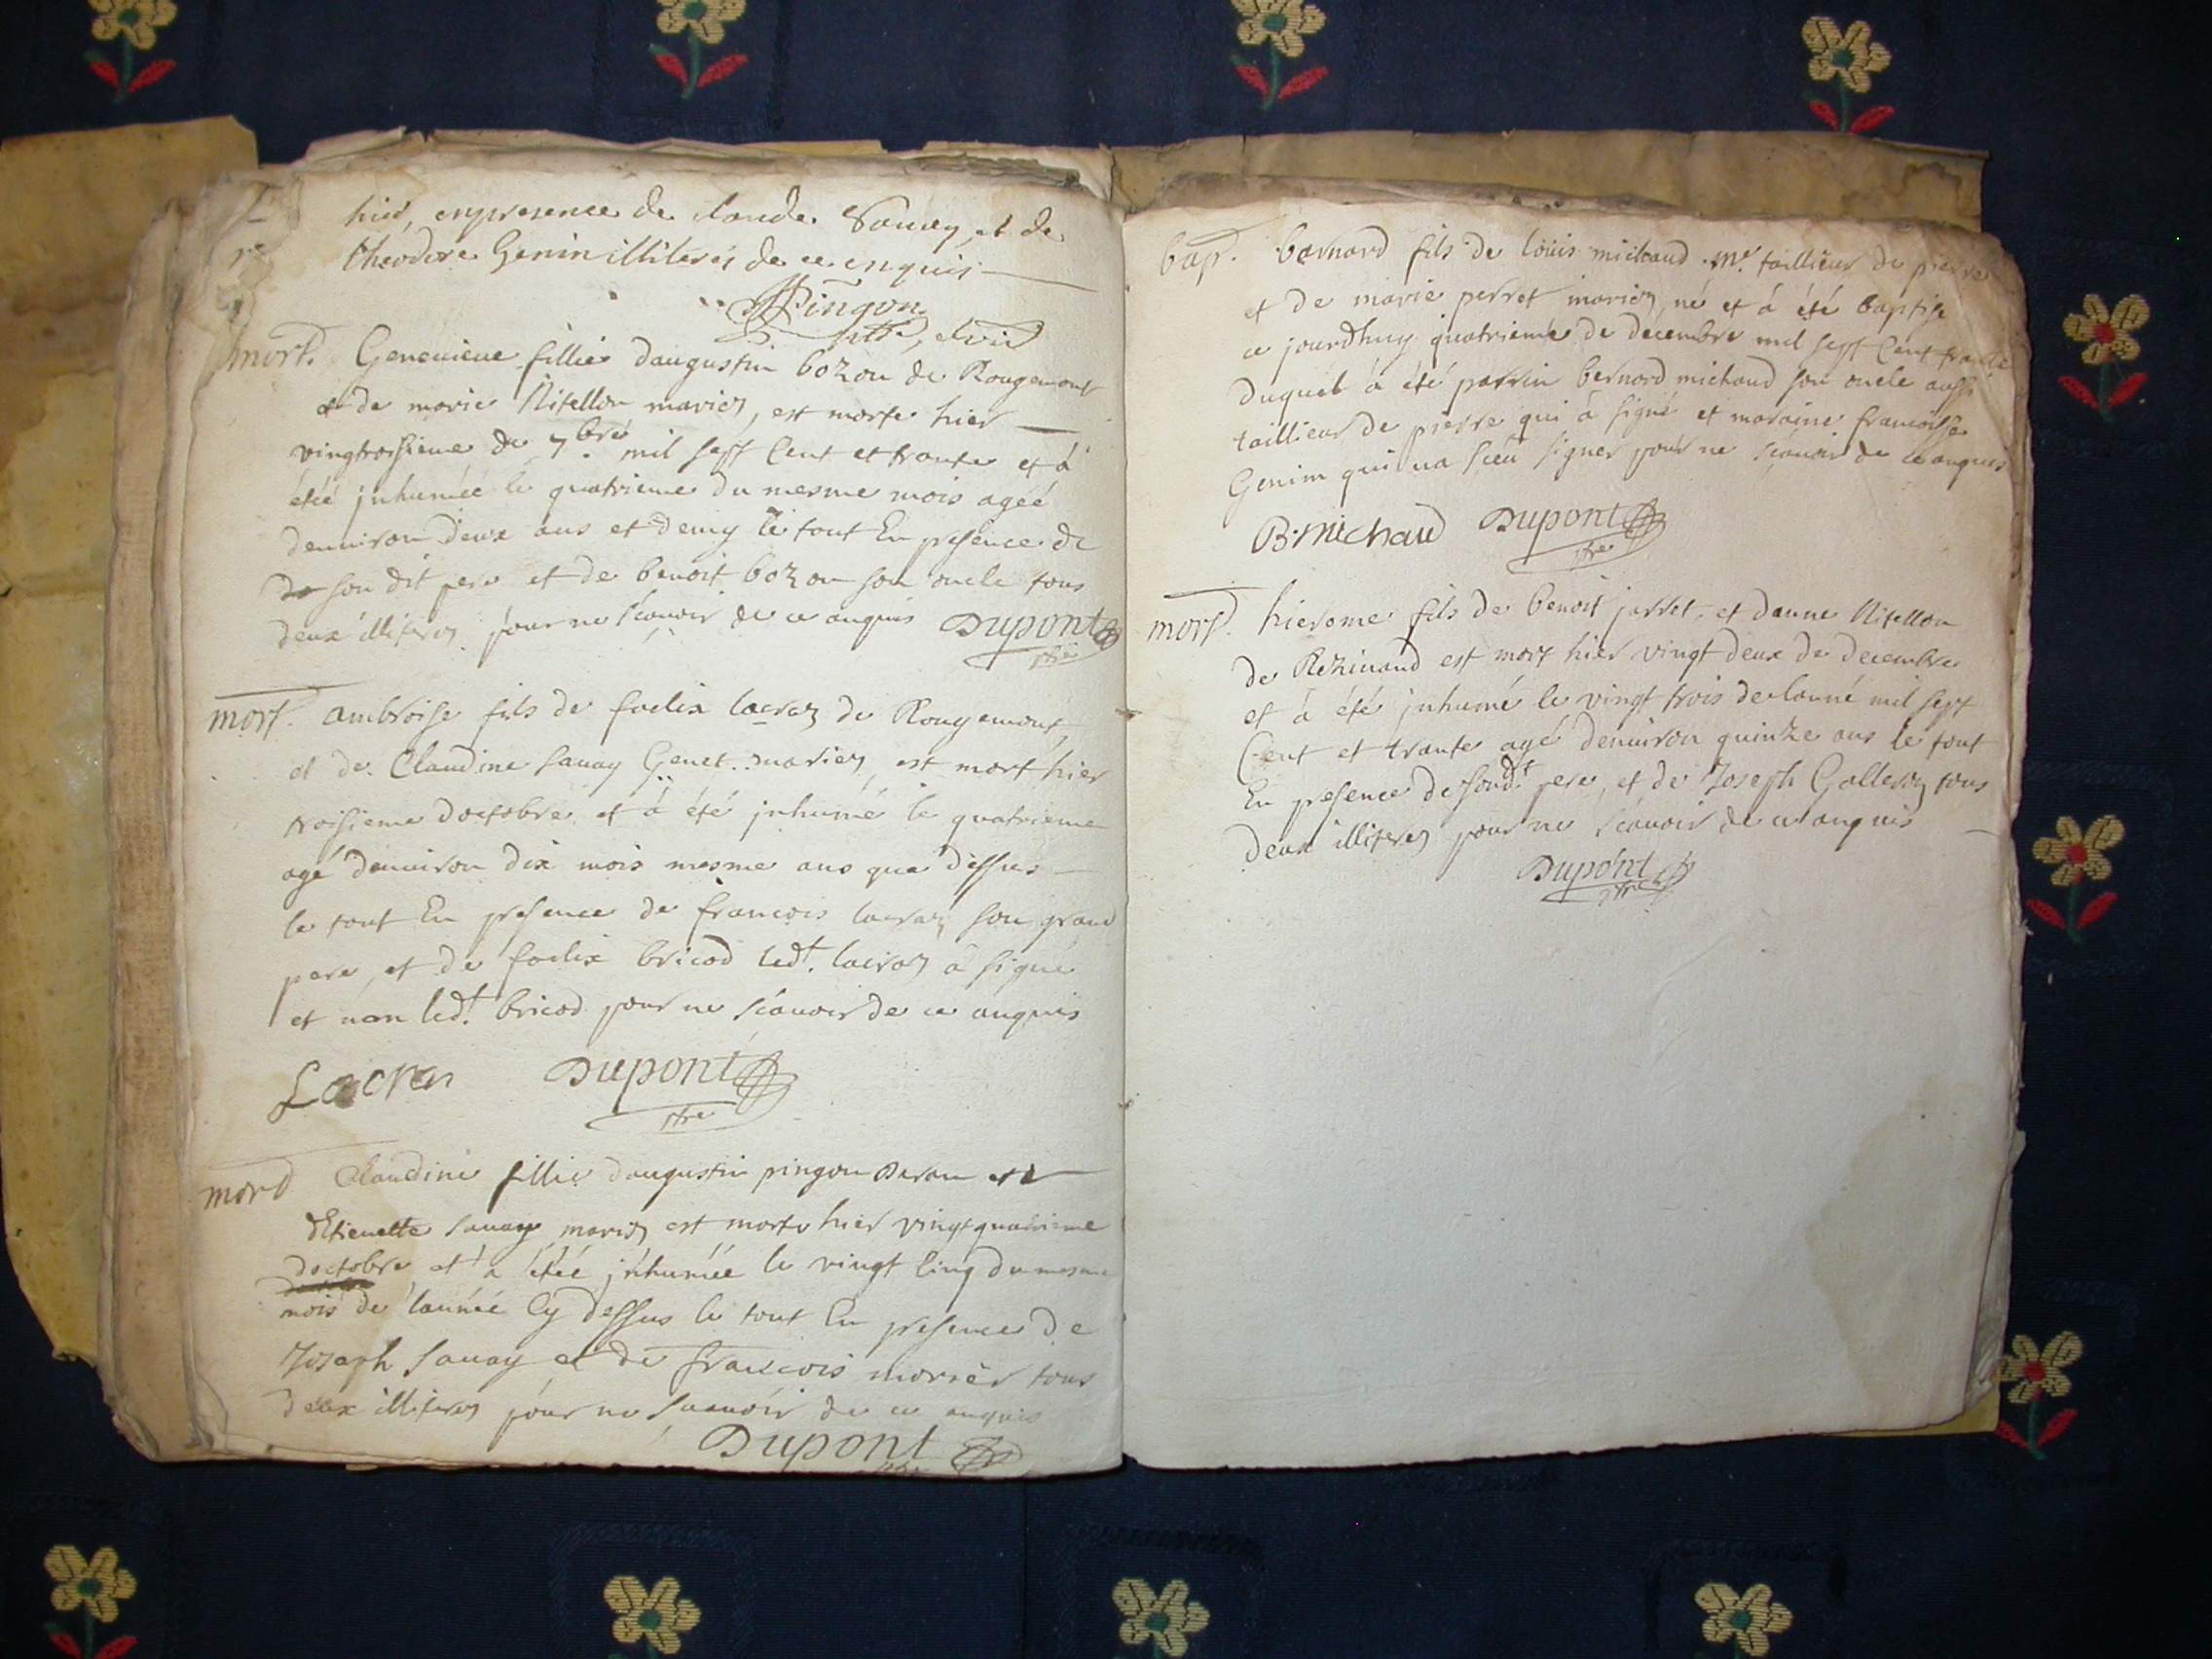 hier, enpresence de claude Sauuey, et de
theodore Genin illiterés de ce enquis
Pingon
mort. Geneuieue fillie daugustin bozon de Rougemont
et de marie Nitellon mariez, est morte hier
vingtroisieme de 7.bre mil sept Cent et trante et á
étéé jnhuméé le quatrieme du mesme mois agéé
denuiron deux ans et demy le tout En presence de
de son dit pere et de benoit bozon son oncle tous
deux illiteres pour ne scauoir de ce anquis Dupont
ptre
mort. ambroise fils de foelix lacraz de Rougemont,
et de Claudine sauay Genet mariez, est mort hier
troisieme doctobre et á été jnhumé le quatrieme
agé denuiron dix mois mesme ans que dessus
le tout En presence de francois lacraz son grand
pere, et de foelix bricod ledt. lacraz á signe
et non ledt. bricod pour ne scauoir de ce anquis
Lacraz Dupont
ptre
mord Claudine fillie daugustin pingon et
dEtienette sauay mariez est morte hier vingtquatrieme
doctobre, et á étéé jnhuméé le vingt Cinq du mesme
mois de lannéé Cy dessus le tout En presence de
Joseph sauay et de francois morier tous
deux illiteres pour ne scauoir de ce anquis
Dupont
bap. bernard fils de loüis michaud Me. taillieur de pierre
et de marie perret mariez, né et á été baptise
ce jourdhuy quatrieme de decembre mil sept Cent trante
duquel á été parrin bernard michaud son oncle aussi
taillieur de pierre qui á signé et maraine francoise
Genim qui na sceu signer pour ne scauoir de ce anquis
B. Michaud Dupont
ptre
mort. hierome fils de benoit jarret, et danne Nitellon
de Rezinand est mort hier vingt deux de decembre
et á été jnhumé le vingt trois de lanné mil sept
Cent et trante agé denuiron quinze ans le tout
En presence de sondt pere, et de Joseph Galleroz tous
deux illiteres pour ne scauoir de ce anquis
Dupont
ptre